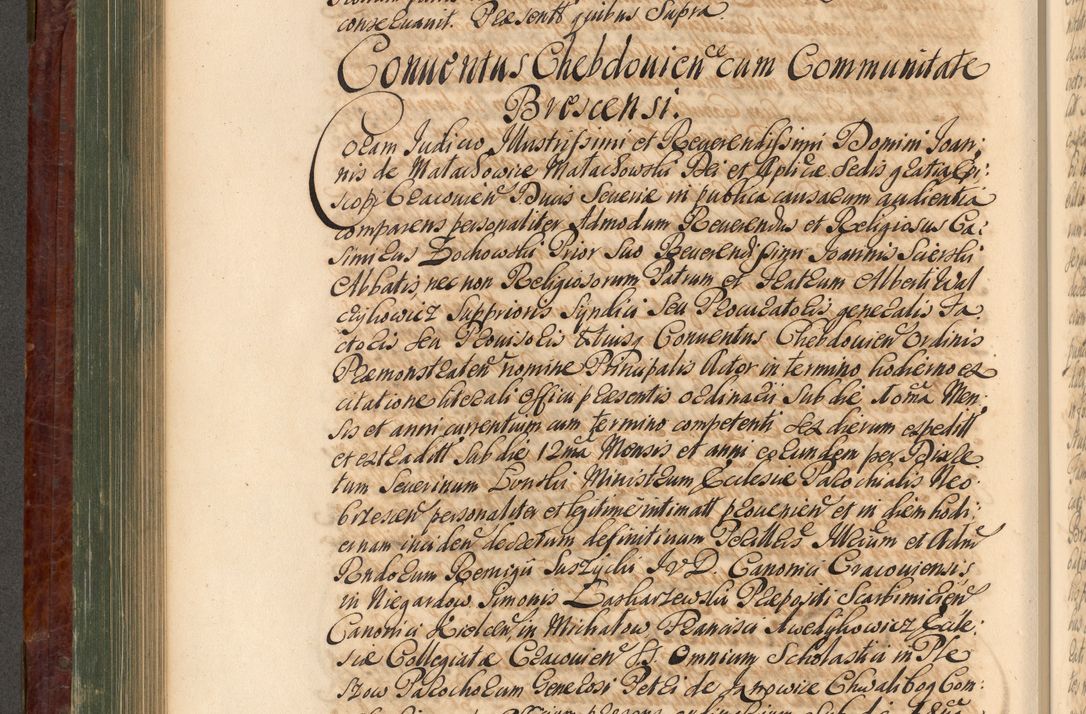 conservavit. Præsentt quibus Supra.
Conventus Chebdoviencē cum Communitate
Brescensi.
Coram Iudicio Illustrissimi et Reverendissimi Domini Joan:
nis de Małachowice Małachowski Dei et Aplicæ Sedis gratia Epi:
scopi Cracovien Ducis Severiæ in publica causarum audientia
comparens personaliter Admodum Reverendus et Religiosus Ca:
simirus Zochowski Prior suo Reverendissimi Joannis Scierski
Abbatis, nec non Religiosorum Patrum et Fratrum Alberti Wal
czyhowicz Supprioris Syndici seu Procuratoris generalis Fa
ctoris seu Provisoris totiusq Conventus Chebdovien Ordinis
Præmonstraten nomine Principalis Actor in termino hodierno ex
citatione literali Officii præsentis ordinarii sub die 10ma Men:
sis et anni currentium cum termino competenti sex dierum expeditt
et extraditt sub die 12ma Mensis et anni eorundem per Discre
tum Severinum Ministrum Ecclesiæ Parochialis Neo
brzescen personaliter et legitime intimatt provenien et in diem hodi:
ernam inciden decretum definitivum Perillris Illrium et Adm
Rndorum Remigii Suszycki J.V.D. Canonici Cracoviensis
in Niegardow, Simonis Præpositi Scarbimirien
Canonici Kielcen in Michałow Francisci Awedykowicz Eccle:
siæ Collegiatæ Cracovien SS. Omnium Scholastici in Ple
szow Parochorum Generosi Petri de Janowice Chwalibog Con: